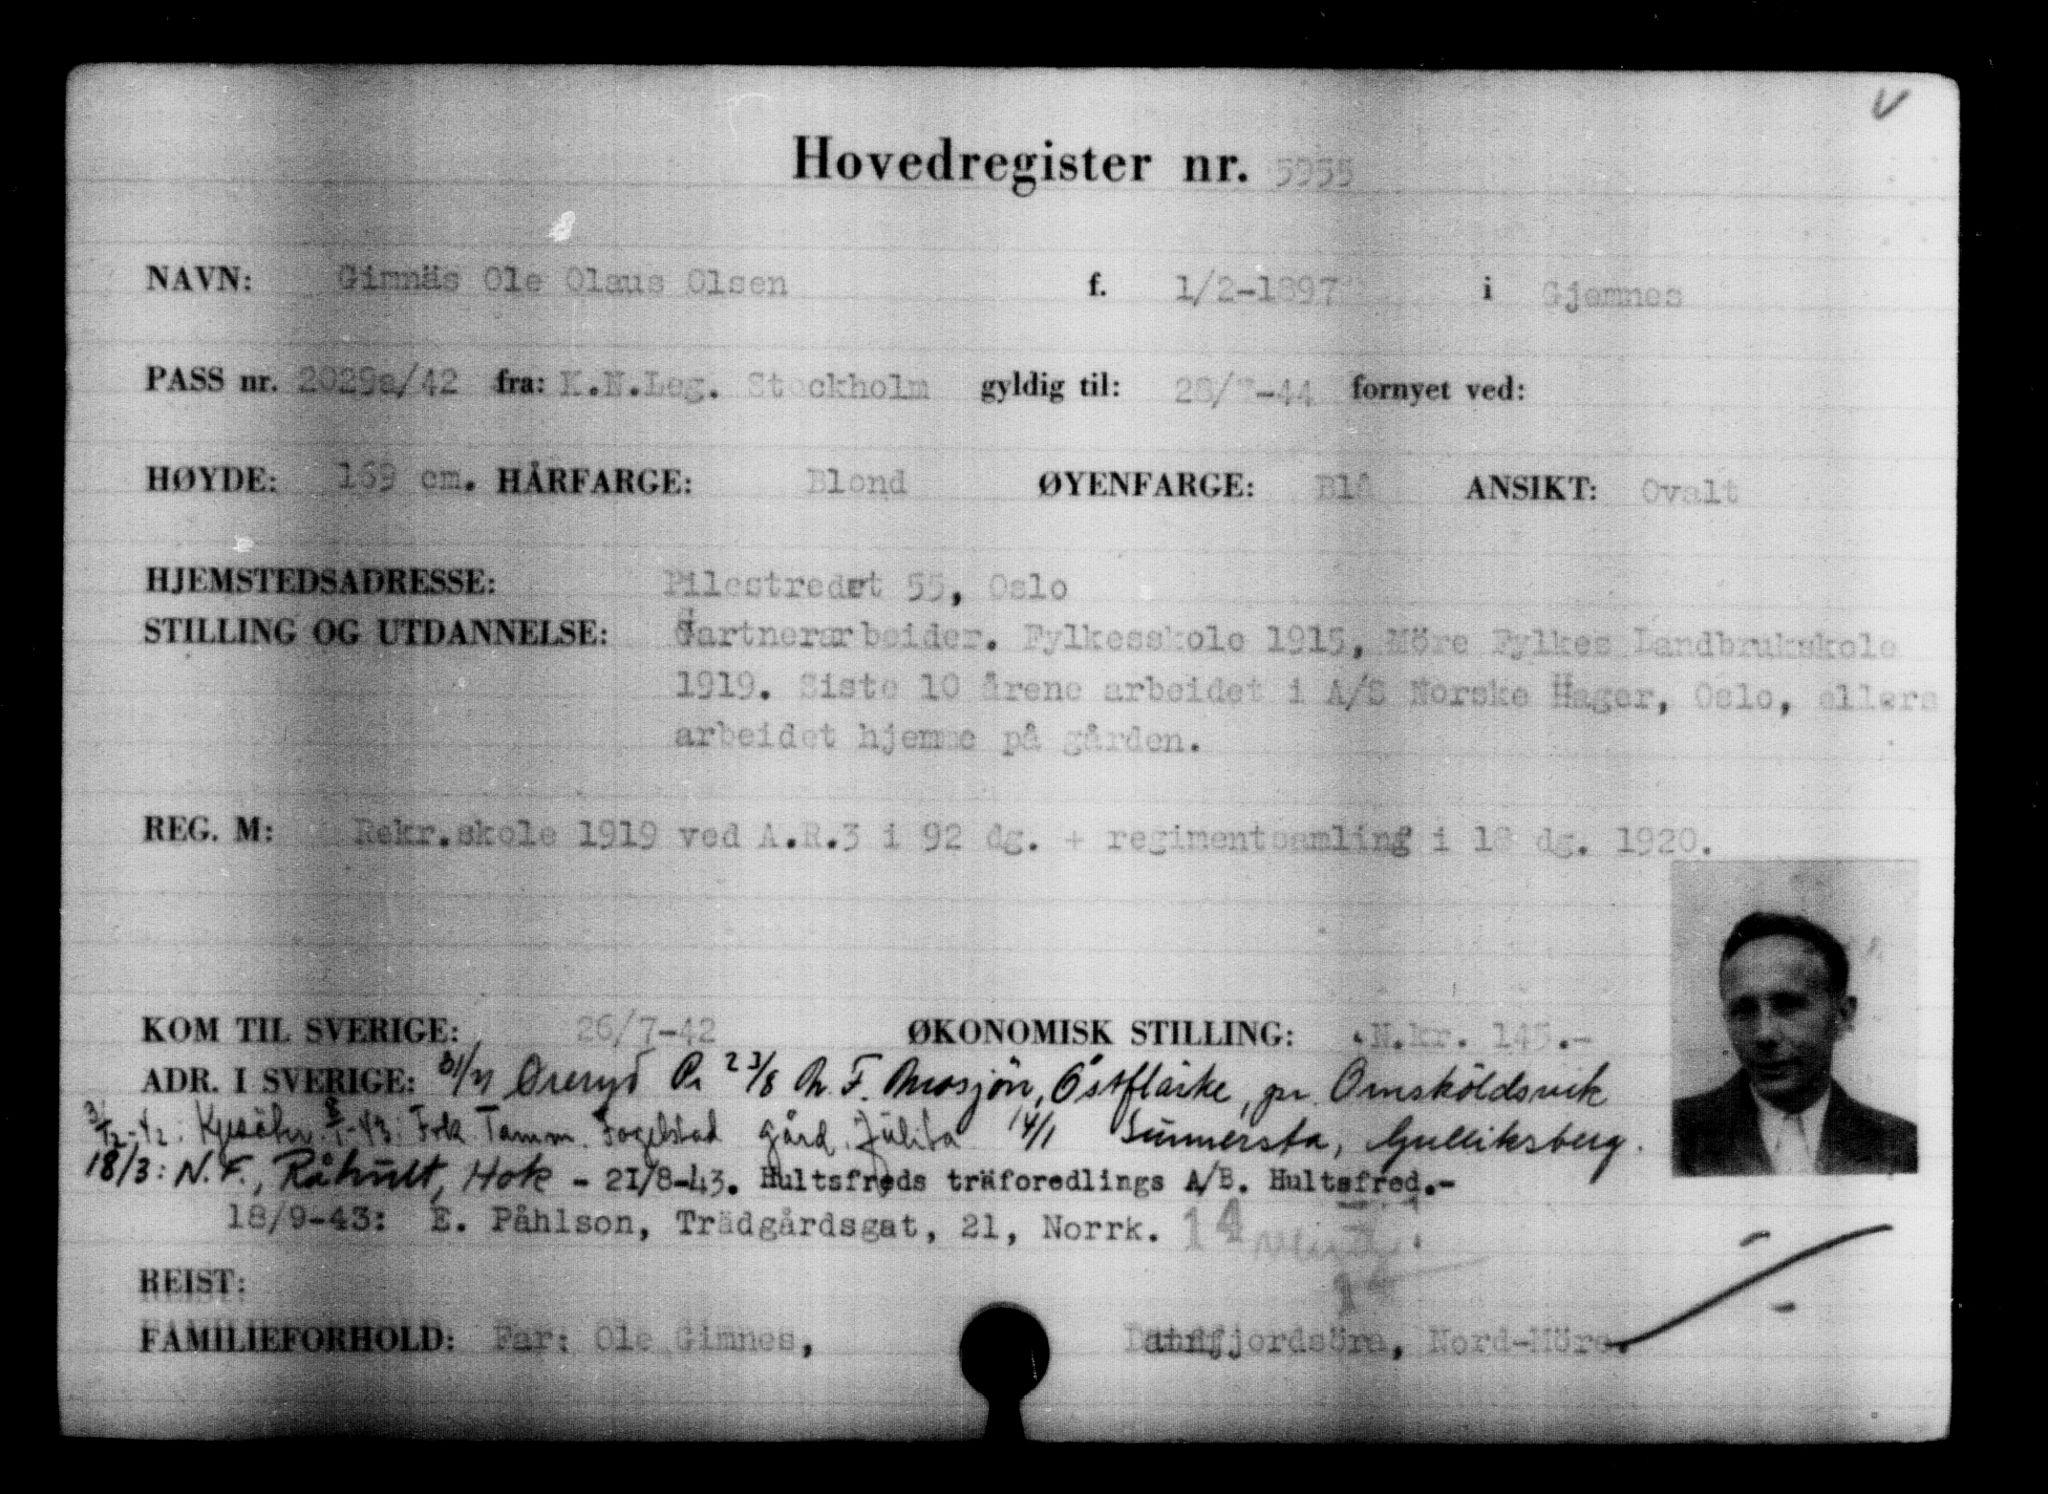 Hovedregister nr. 5955
NAVN: Gimnäs Ole Olaus Olsen f. 1/2-1897 i Gjemnes
PASS nr. 2029a/42 fra: K.N.Leg. Stockholm gyldig til: 28/ -44 fornyet ved:
HØYDE: 169 cm. HÅRFARGE: Blond ØYENFARGE: Blå ANSIKT: Ovalt
HJEMSTEDSADRESSE: Pilestredet 55, Oslo
STILLING OG UTDANNELSE: Gartnerarbeider. Fylkesskole 1915, Möre Fylkes Landbrukskole
1919. Siste 10 årene arbeidet i A/S Norske Hager, Oslo, ellers
arbeidet hjemme på gården.
REG. M: Rekr.skole 1919 ved A.R.3 i 92 dg. + regimentsamling i 18 dg. 1920.
KOM TIL SVERIGE: 26/7-42 ØKONOMISK STILLING: N.kr. 145.-
ADR. I SVERIGE: 31/7 Øreryd 23/8 F. Mosjön, Östflärke, pr. Örnsköldsvik
Frk. Tamm. Fogelstad gård. Julita 14/1 Sunnersta, Gulliksberg.
18/3: N.F., Råhult, Hok - 21/8-43. Hultsfreds träforedlings A/B. Hultsfred.-
18/9-43: E. Påhlson, Trädgårdsgat, 21, Norrk. 14
REIST:
FAMILIEFORHOLD: Far: Ole Gimnes, Nord-Möre.